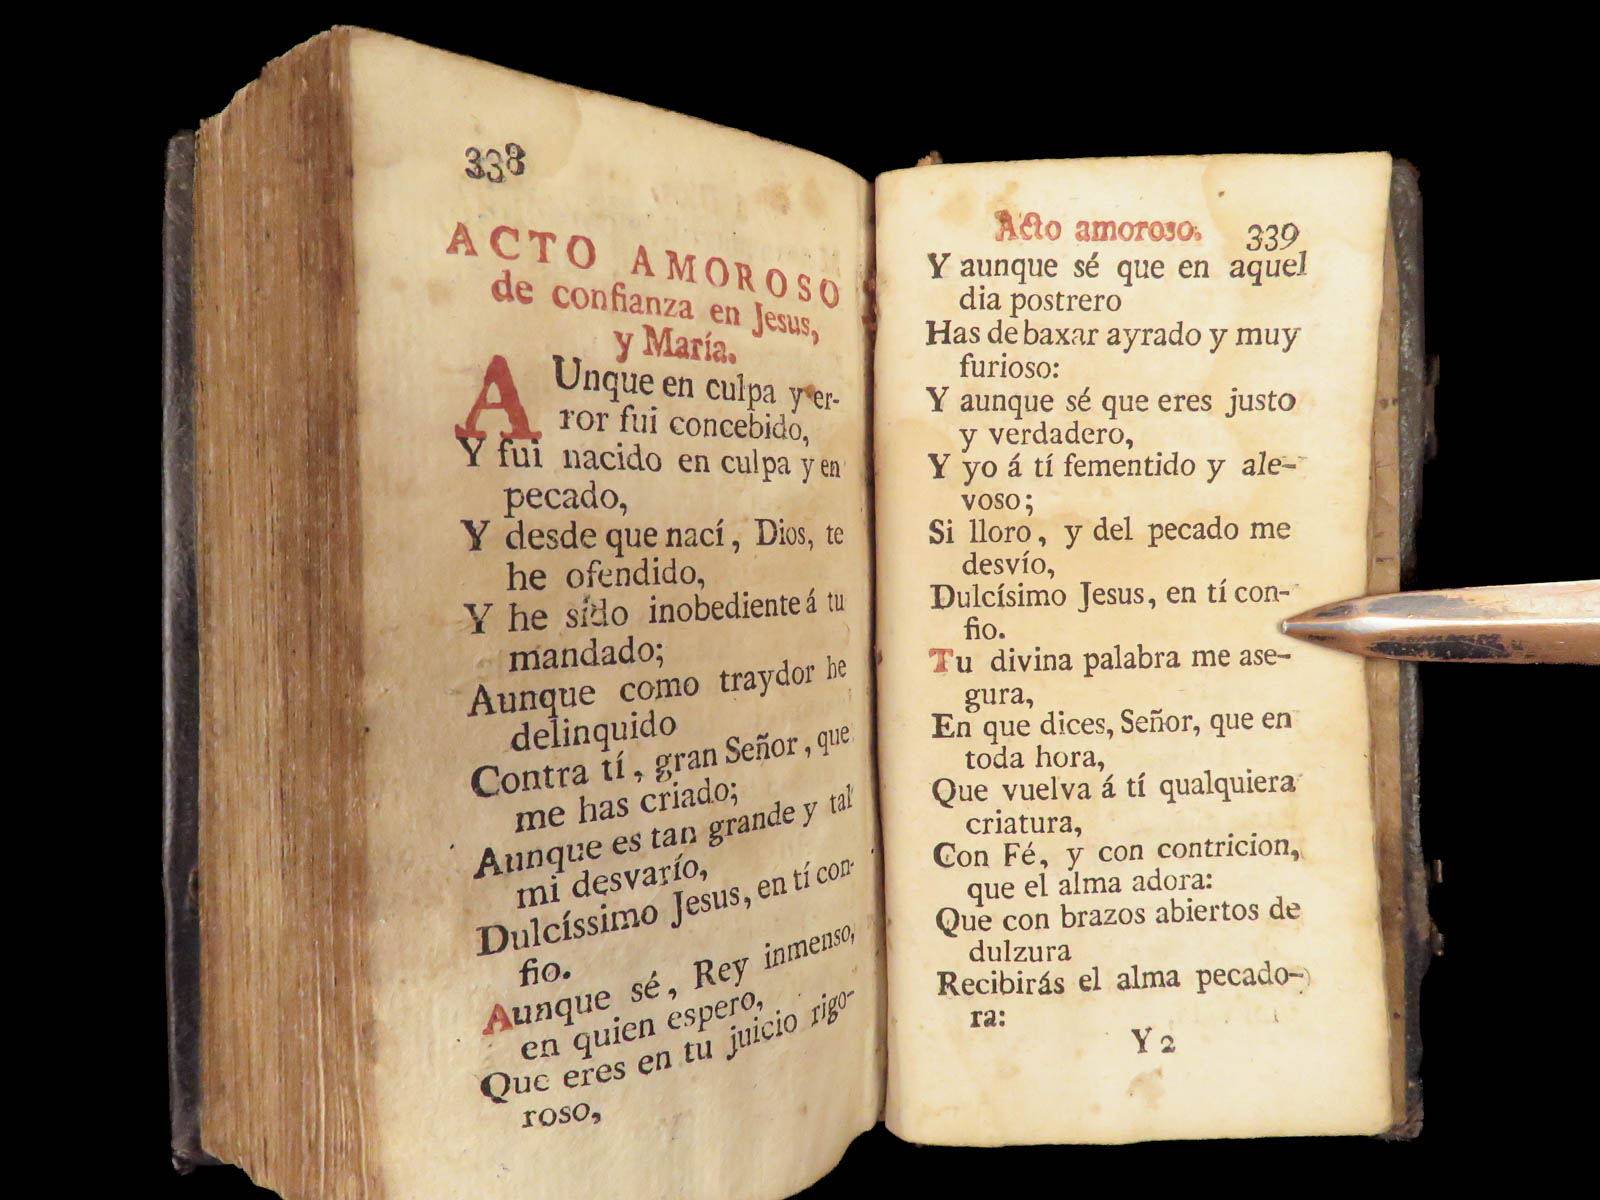 338
ACTO AMOROSO
de confianza en Jesus,
y María.
AUnque en culpa y er-
ror fui concebido,
Y fui nacido en culpa y en
pecado,
Y desde que nací, Dios, te
he ofendido,
Y he sido inobediente á tu
mandado;
Aunque como traydor he
delinquido
Contra tí, gran Señor, que
me has criado;
Aunque es tan grande y tal
mi desvarío,
Dulcíssimo Jesus, en tí con-
fio.
Aunque sé, Rey inmenso,
en quien espero,
Que eres en tu juicio rigo-
roso,
Acto amoroso. 339
Y aunque sé que en aquel
dia postrero
Has de baxar ayrado y muy
furioso:
Y aunque sé que eres justo
y verdadero,
Y yo á tí fementido y ale-
voso;
Si lloro, y del pecado me
desvío,
Dulcísimo Jesus, en tí con-
fio.
Tu divina palabra me ase-
gura,
En que dices, Señor, que en
toda hora,
Que vuelva á tí qualquiera
criatura,
Con Fé, y con contricion,
que el alma adora:
Que con brazos abiertos de
dulzura
Recibirás el alma pecado-
ra:
Y 2